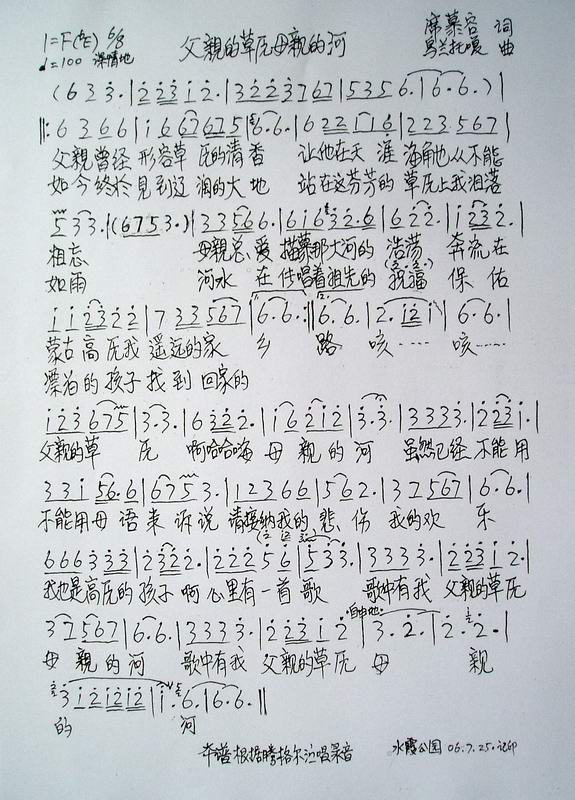 1=F(♭E) 6/8 父親的草原母親的河 席慕容 词
♩=100 深情地 乌兰托嘎 曲
(6 3 3·|2 2 3 1 2·|3 2 2 3 7 6 7|5 3 5 6·|6·6·)|
‖:6 3 6 6|1 6 6 7 6 7 5|6·6·|6 2 2 1 1 6|2 2 3 5 6 7|
父親曾经 形容草 原的清香 让他在天 涯 海角也从不能
如今终於 見到辽 阔的大 地 站在这芬芳的 草原上我泪落
5 3 3·|(6 7 5 3·)|3 3 5 6 6·|6 1 6 3 2·6|6 2 2·|1 2 3 2·|
相忘 母親总 爱 描摹那大河的 浩荡 奔流在
如雨 河水 在 传唱着祖先的 祝福 保 佑
1 1 2 3 2 2|7 3 3 5 6 7|6·6·:‖6·6·|2·1 2 1|6·6·|
蒙古高原我 遥远的家 乡 路 咳…… 咳……
漂泊的孩子找到 回家的
1 2 3 6 7 5|3·3·|6 3 2 2·|1 6 2 1 2|3·3·|3 3 3 3·|2 2 3 1·|
父親的草 原 啊哈哈嗨 母 親 的 河 虽然已经 不能用
3 3 1 5 6·6|6 7 5 3·|1 2 3 6 6|5 6 2·|3 7 5 6 7|6·6·|
不能用母 语来 诉说 请接纳我的 悲 伤 我的欢 乐
6 6 6 3 3 3|2 3 2 2·|2 2 2 5 6|5 3 3·|3 3 3 3·|2 2 3 1 2·|
我也是高原的 孩子 啊 心里有一首 歌 歌中有我 父親的草原
3 7 5 6 7|6·6·|3 3 3 3·|2 2 3 1 2|自由地 3·2·|2·2·|
母 親 的 河 歌中有我 父親的草原 母 親
3 1 2 1 2 1 2|1·6·|6·6·‖
的 河
本谱根据腾格尔演唱录音 水霞公园 06.7.25.记印